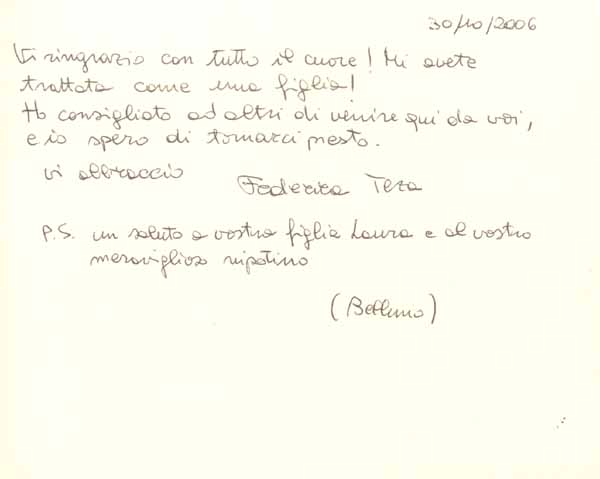 30/10/2006
Vi ringrazio con tutto il cuore! Mi avete
trattata come una figlia!
Ho consigliato ad altri di venire qui da voi,
e io spero di tornarci presto.
Vi abbraccio
Federica Teza
P.S. un saluto a vostra figlia Laura e al vostro
meraviglioso nipotino
(Belluno)